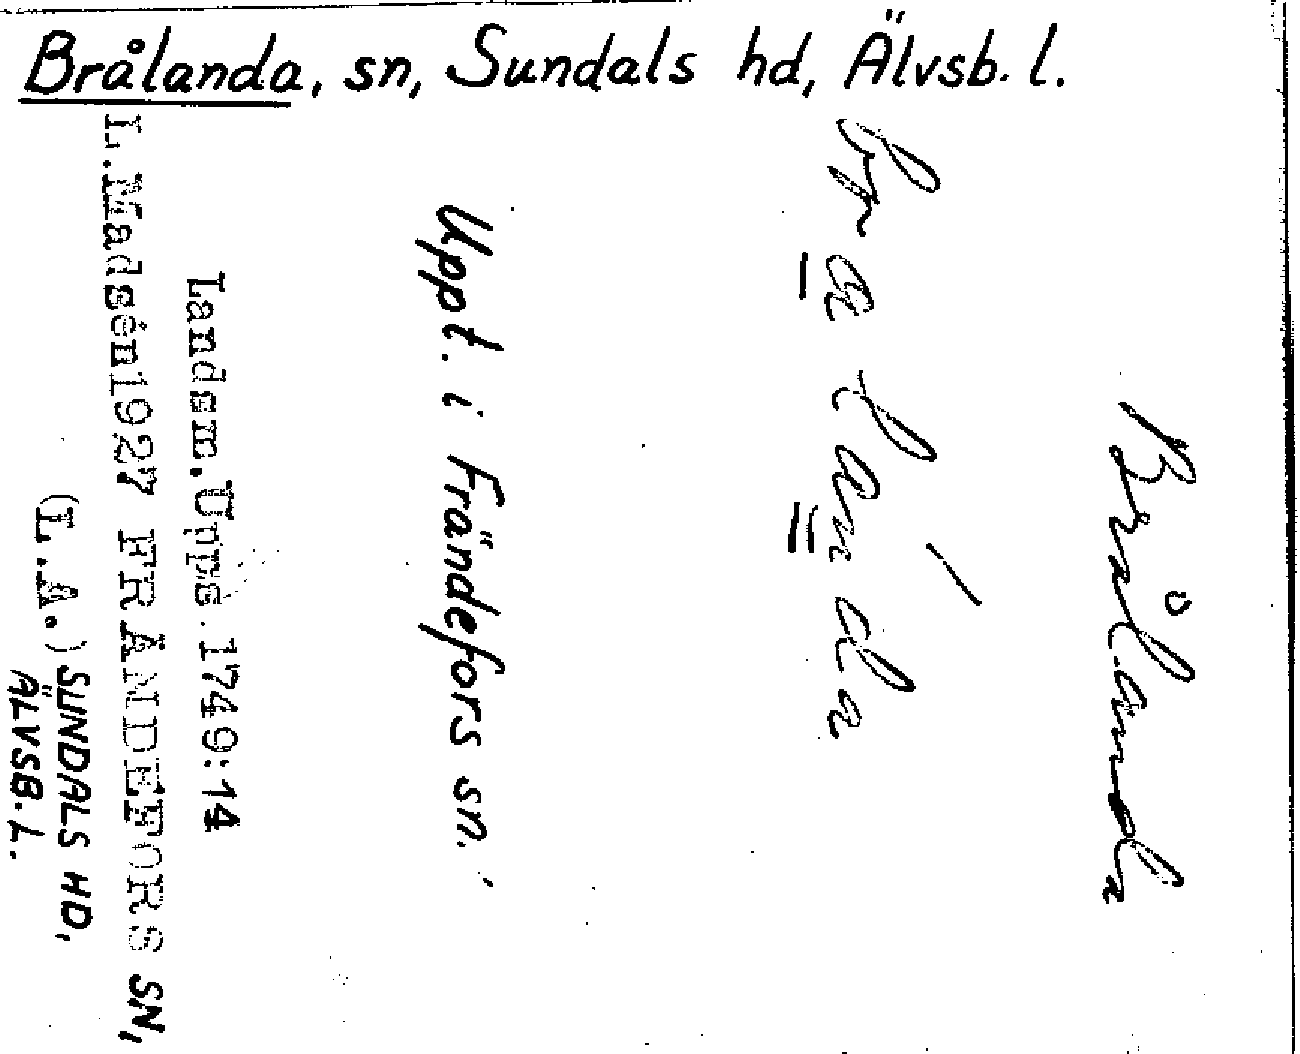 Brålanda, sn, Sundals hd, Älvsb. l.
Brålanda
Uppt. i Frändefors sn.
Landsm. Upps. 1749:14
L. Madsén 1927 FRÄNDEFORS SN,
(L.A.) SUNDALS HD,
ÄLVSB. L.